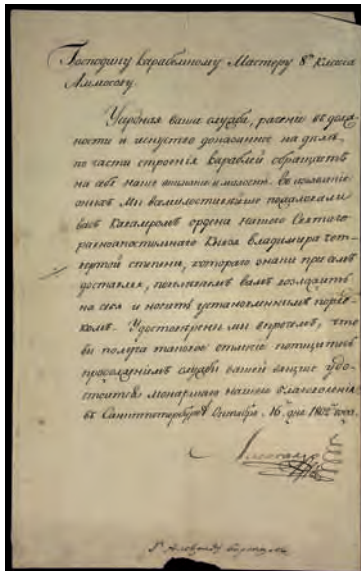 Господину Корабельному Мастеру 8го Класса
Амосову.
Усердная ваша служба, рвение къ долж
ности и искуство доказанное на дѣлѣ,
по части строенiя Кораблей обращаютъ
на себя наше вниманiе и милость. Въ
Мы всемилостивѣйше пожаловали
васъ Кавалеромъ ордена нашего Святаго
равноапостольнаго Князя Владимира чет
вертой степени, котораго знаки при семъ
доставляя, повелѣваемъ вамъ возложить
на себя и носить установленнымъ поряд
комъ. Удостовѣрены мы впрочемъ, что
вы получа таковое отличiе потщитесь
продолженiемъ службы вашей вящше удо
стоиться монаршаго нашего благоволенiя
въ Санктпетербургѣ Октября, 16. дня 1802 года.
Александръ